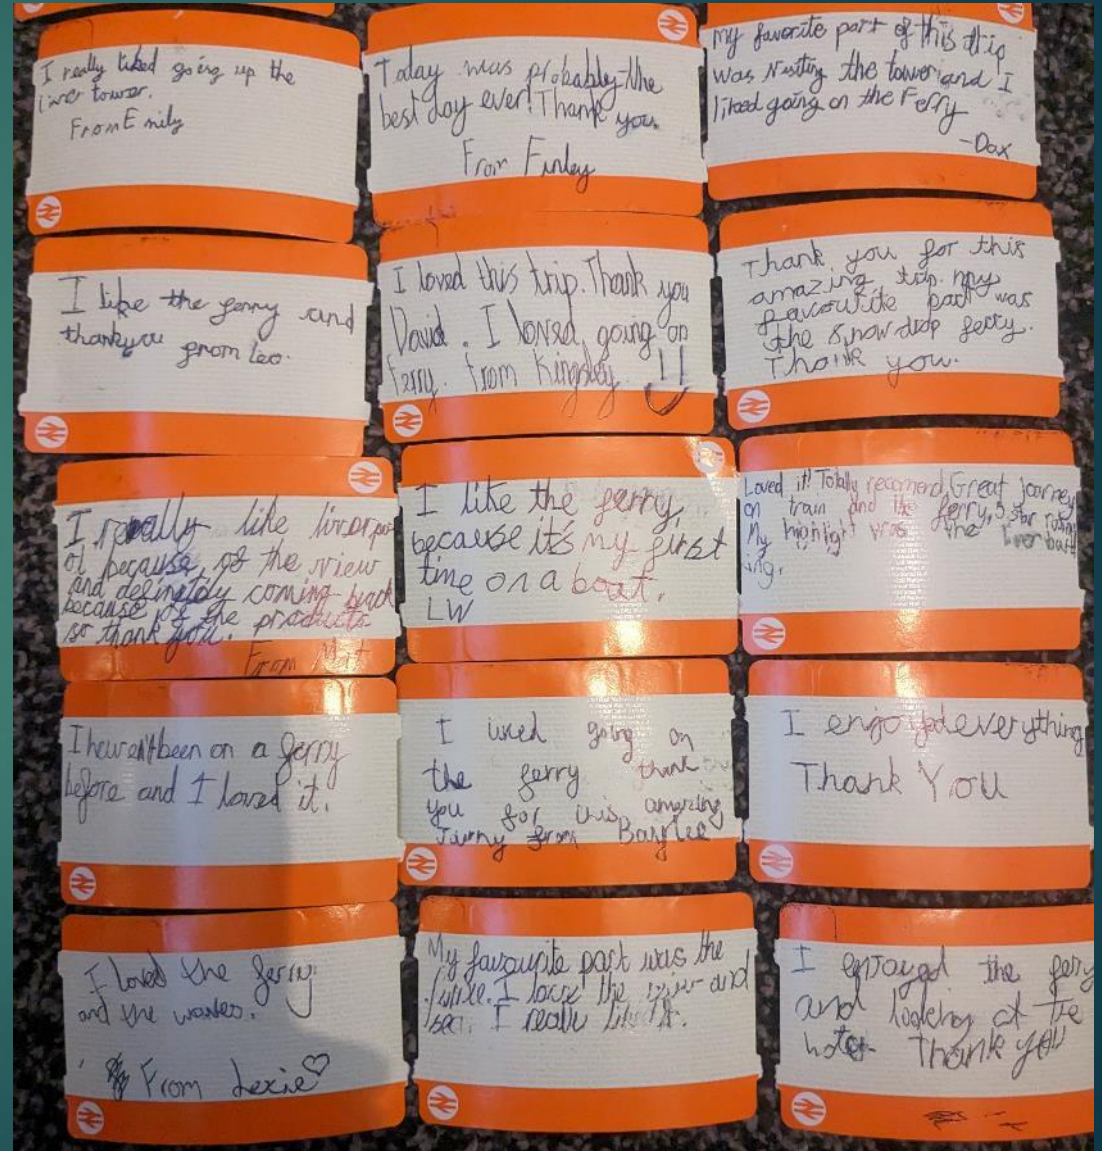 I really liked going up the
liver tower.
From Emily
Today was probably the
best day ever! Thank you.
From Finley
My favorite part of this trip
was visiting the tower and I
liked going on the Ferry
-Dax
I like the ferry and
thankyou from Leo.
I loved this trip. Thank you
David. I loved going on
Ferry. From Kingsley
Thank you for this
amazing trip. my
favourite part was
the snowdrop ferry.
Thank you.
I really like liverpo
ol because of the view
and definately coming back
because of the products
so thank you.
From Mat
I like the ferry,
because it's my first
time on a boat.
LW
Loved it! Totally recomend. Great journey
on train and the ferry, 5 star rating
My highlight was the liver build
ing.
I haven't been on a ferry
before and I loved it.
I liked going on
the ferry thank
you for this amazing
Jurny from Baylee
I enjoyed everything
Thank You
I loved the ferry
and the waves.
From Lexie
My favourite part was the
I love the and
sea. I really
I enjoyed the fery
and looking at the
Thank you